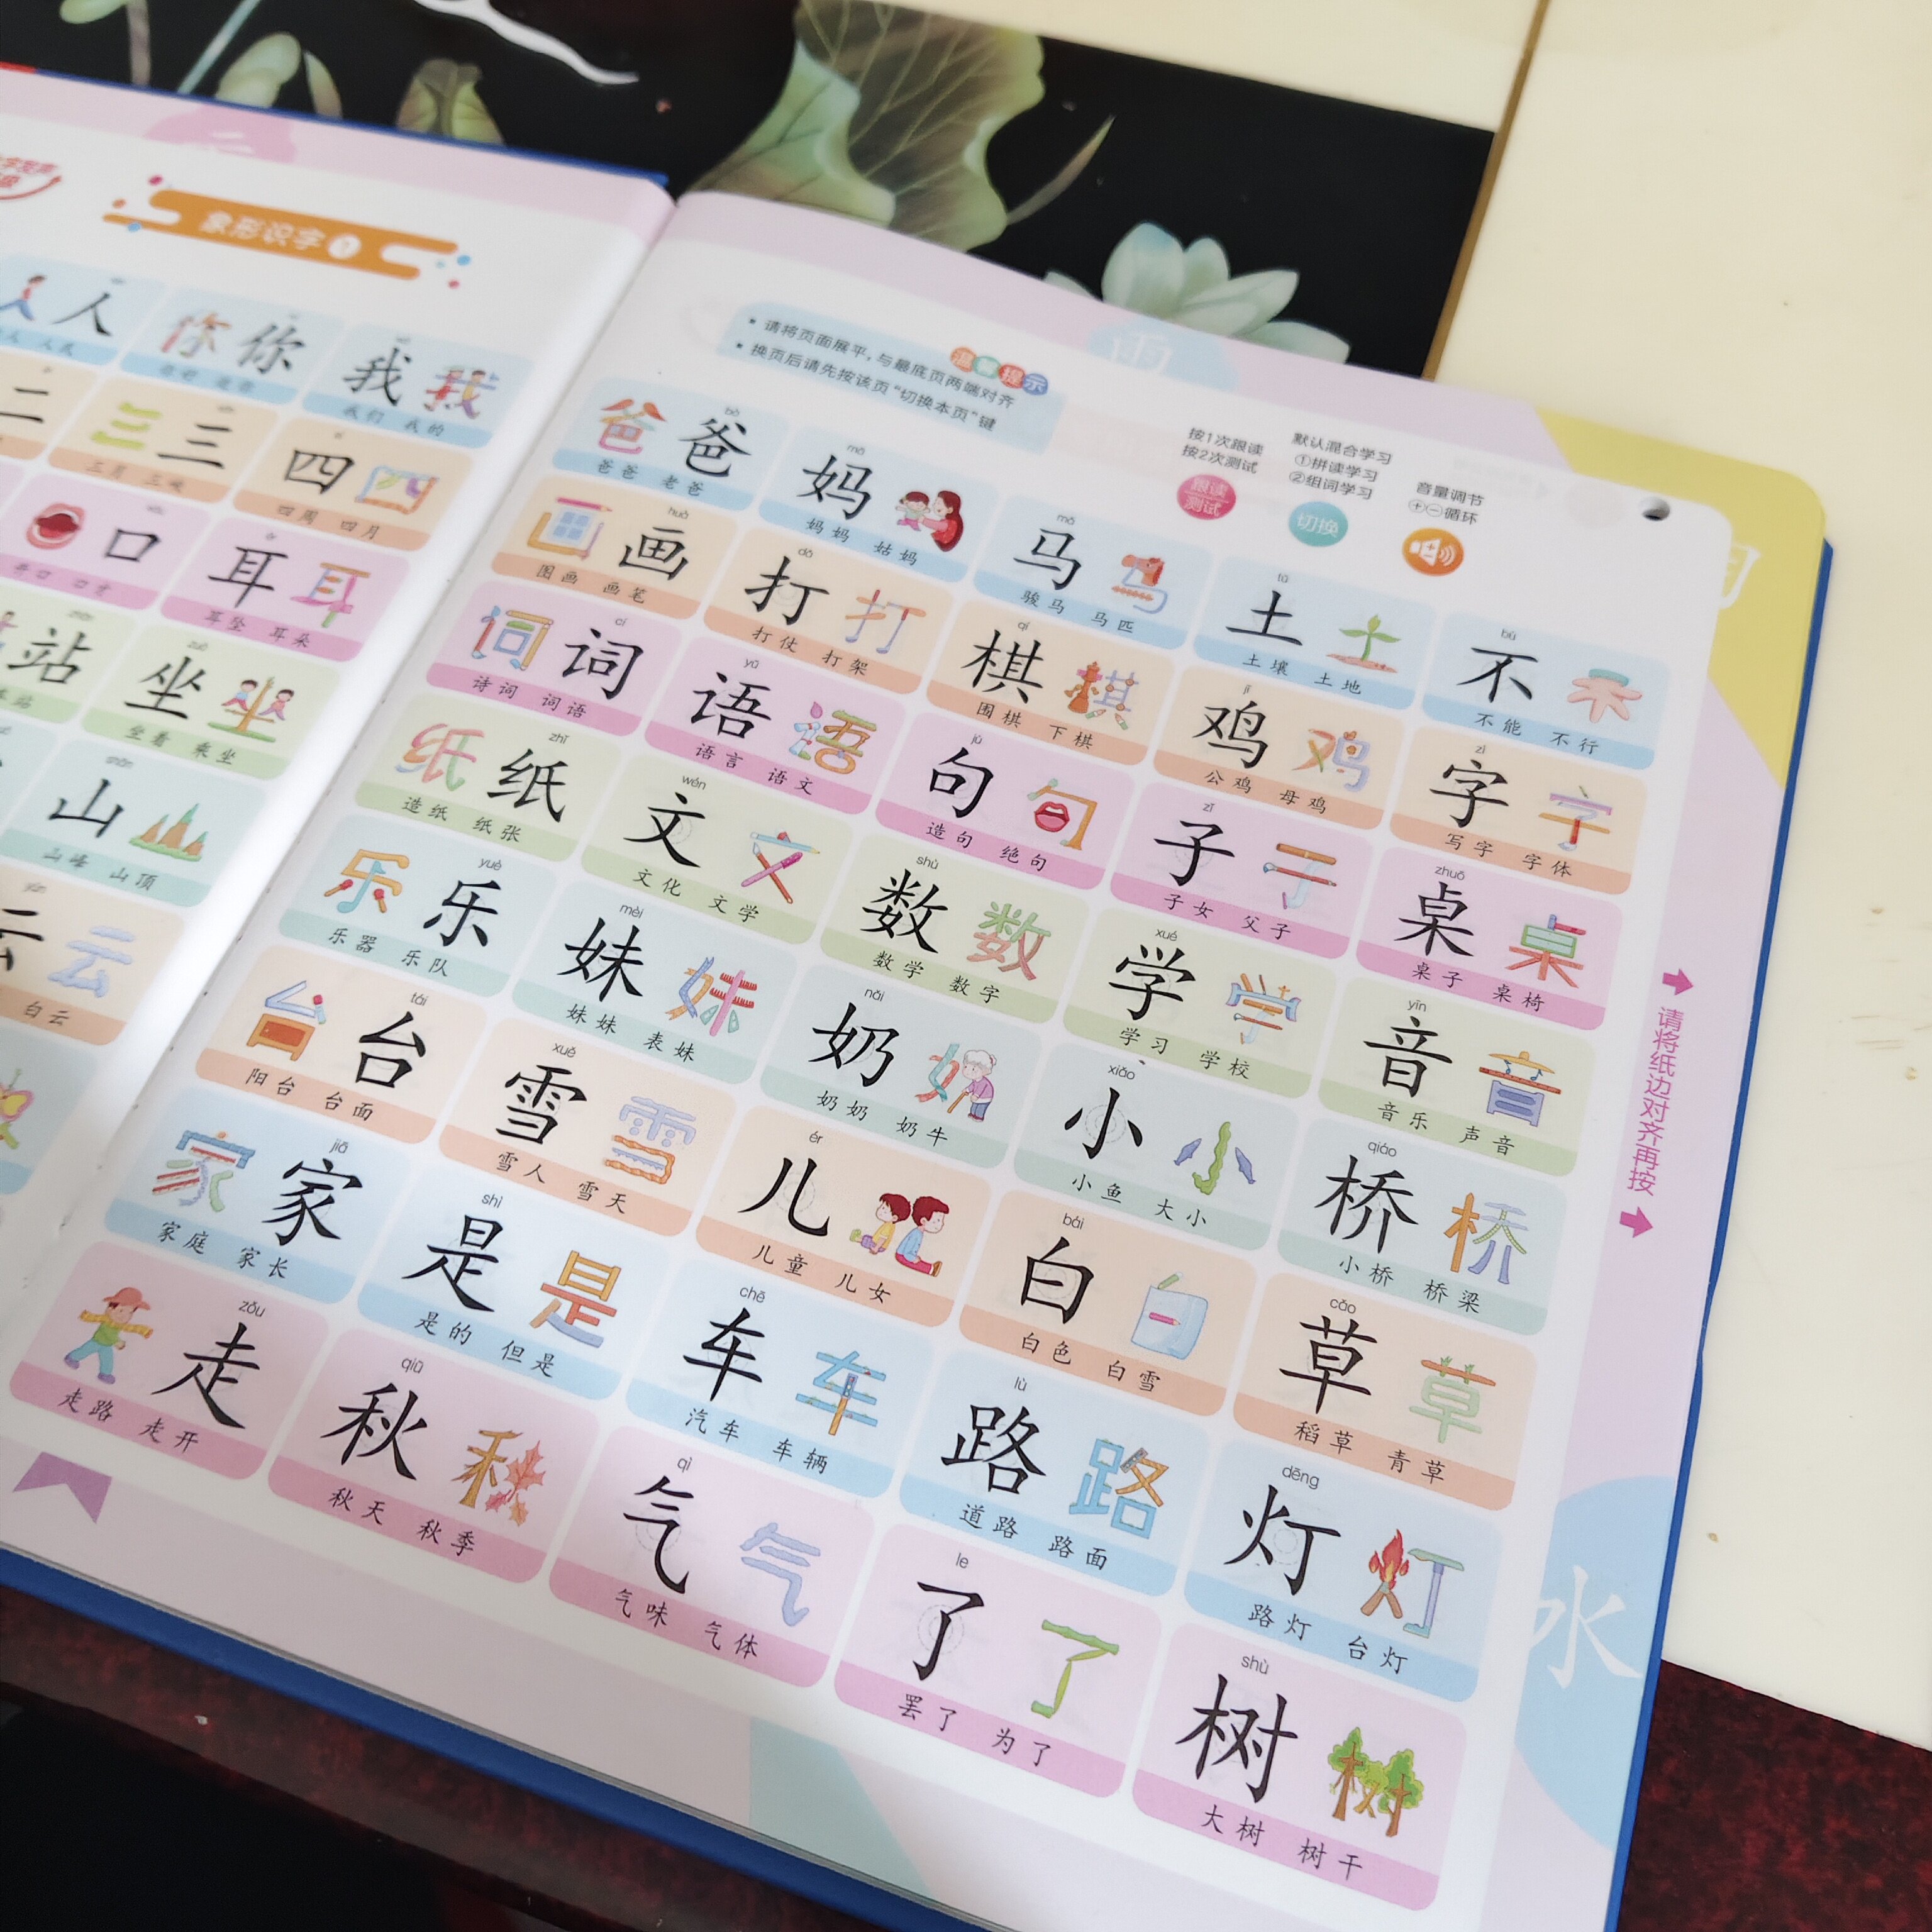 象形识字
人 人
你 你
我 我
我们 我的
二
三 三
三月
四
四周 四月
口
耳 耳
耳坠 耳朵
站
坐 坐
坐着 乘坐
山
山峰 山顶
云 云
白云
温馨提示
• 请将页面展平，与最底页两端对齐
• 换页后请先按该页“切换本页”键
按1次跟读
按2次测试
跟读
测试
默认混合学习
①拼读学习
②组词学习
切换
音量调节
⊕⊖循环
bà
爸 爸
爸爸 老爸
mā
妈
妈妈 姑妈
mǎ
马 马
骏马 马匹
tǔ
土 土
土壤 土地
bù
不 不
不能 不行
huà
画 画
图画 画笔
dǎ
打 打
打仗 打架
qí
棋 棋
围棋 下棋
jī
鸡 鸡
公鸡 母鸡
zì
字 字
写字 字体
cí
词 词
诗词 词语
yǔ
语 语
语言 语文
jù
句 句
造句 绝句
zǐ
子 子
子女 父子
zhuō
桌 桌
桌子 桌椅
zhǐ
纸 纸
造纸 纸张
wén
文 文
文化 文学
shù
数 数
数学 数字
xué
学 学
学习 学校
yīn
音 音
音乐 声音
yuè
乐 乐
乐器 乐队
mèi
妹 妹
妹妹 表妹
nǎi
奶 奶
奶奶 奶牛
xiǎo
小 小
小鱼 大小
qiáo
桥 桥
小桥 桥梁
tái
台 台
阳台 台面
xuě
雪 雪
雪人 雪天
ér
儿
儿童 儿女
bái
白 白
白色 白雪
cǎo
草 草
稻草 青草
jiā
家 家
家庭 家长
shì
是 是
是的 但是
chē
车 车
汽车 车辆
lù
路 路
道路 路面
dēng
灯 灯
路灯 台灯
zǒu
走
走路 走开
qiū
秋 秋
秋天 秋季
qì
气 气
气味 气体
le
了 了
罢了 为了
shù
树 树
大树 树干
请将纸边对齐再按
雨
水